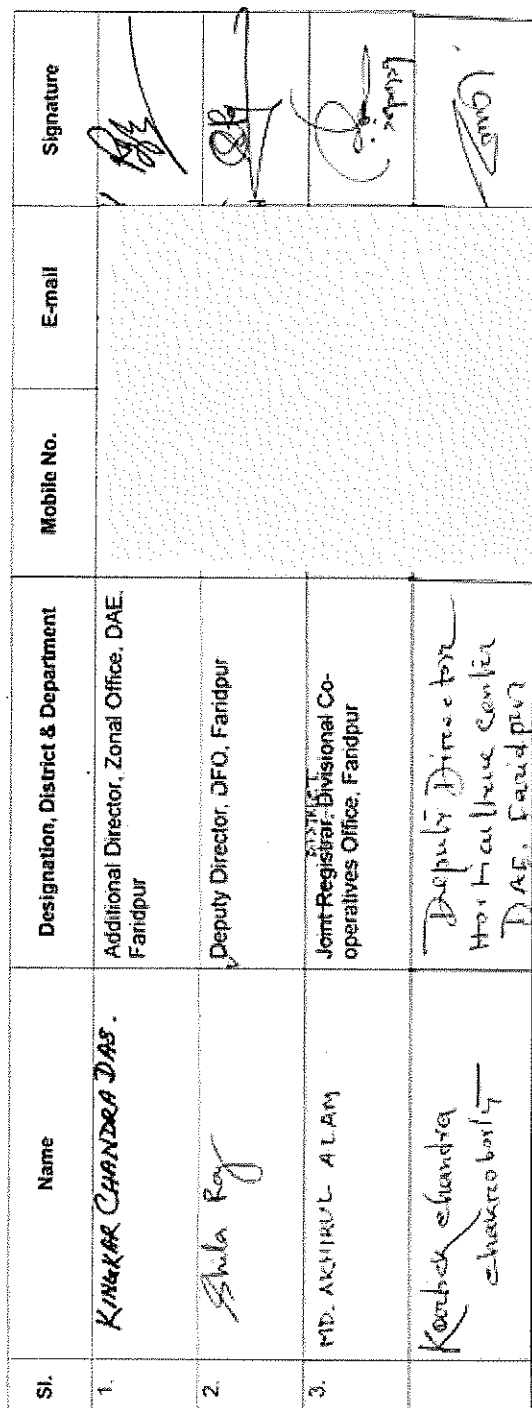 Sl. Name Designation, District & Department Mobile No. E-mail Signature
1. KINGKAR CHANDRA DAS. Additional Director, Zonal Office, DAE,
Faridpur
2. Shila Roy Deputy Director, DFO, Faridpur
3. MD. AKHIRUL ALAM DISTRICT
Joint Registrar, Divisional Co-
operatives Office, Faridpur
Kartick chandra
chakroborty
Deputy Director
Horticulture Center
DAE, Faridpur